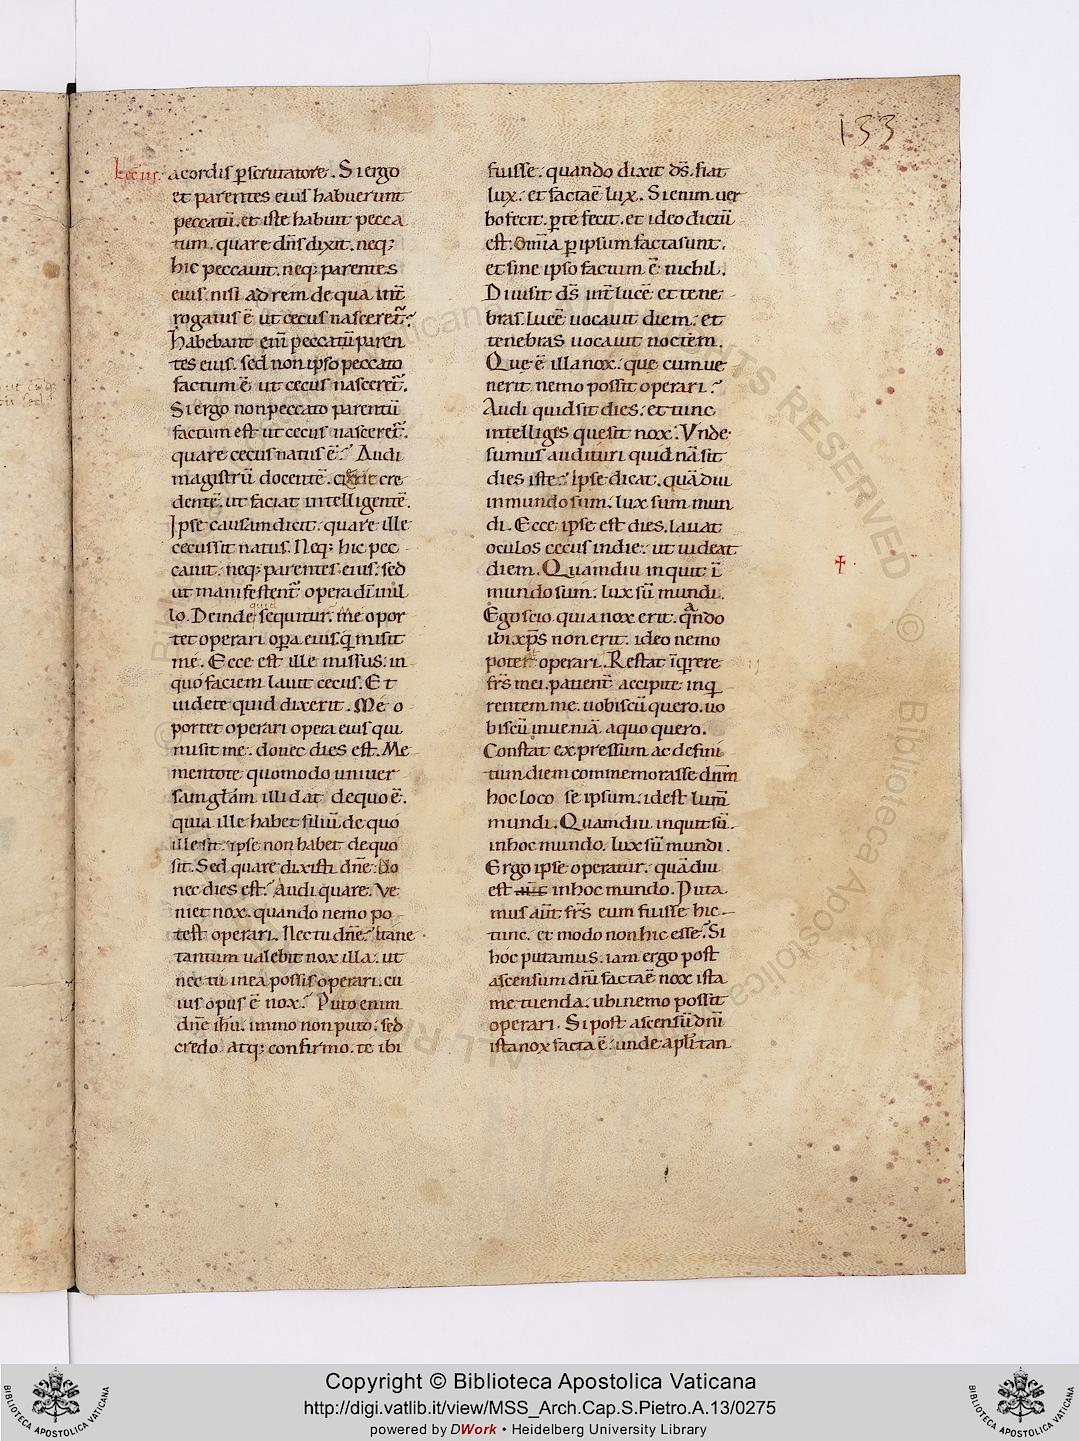 133
Lec̄ iii.
a cordis ꝑscrutatore. Si ergo
et parentes eius habuerunt
peccatū. et iste habuit pecca
tum. quare dn̄s dixit. neq;
hic peccauit. neq; parentes
eius. nisi ad rem de qua int̄
rogatus ē ut cecus nasceret᷑?
Habebant enī peccatū paren
tes eius. sed non ipso peccato
factum ē ut cecus nasceret᷑.
Si ergo non peccato parentū
factum est ut cecus nasceret᷑.
quare cecus natus ē? Audi
magistrū docentē. cre
dentē. ut faciat intelligentē.
Ipse causam dicit. quare ille
cecus sit natus. Neq; hic pec
cauit. neq; parentes eius. sed
ut manifestent᷑ opera dī in il
lo. Deinde sequitur. Me opor
tet operari oꝑa eius q̄ misit
me. Ecce est ille missus. in
quo faciem lauit cecus. Et
uidete quid dixerit. Me o
portet operari opera eius qui
misit me. donec dies est. Me
mentote quomodo uniuer
sam gl̄am illi dat de quo ē.
quia ille habet filiū de quo
ille sit. ipse non habet de quo
sit. Sed quare dixisti dn̄e. Do
nec dies est? Audi quare. Ve
niet nox. quando nemo po
test operari. Nec tu dn̄e? Itane
tantum ualebit nox illa. ut
nec tu in ea possis operari. cu
ius opus ē nox? Puto enim
dn̄e ih̄u. immo non puto. sed
credo. atq; confirmo. te ibi
fuisse. quando dixit ds̄. fiat
lux. et facta ē lux. Si enim uer
bo fecit. ꝑ te fecit. et ideo dictū
est. Omīa ꝑ ipsum facta sunt.
et sine ipso factum ē nichil.
Diuisit ds̄ int̄ lucē et tene
bras. lucē uocauit diem. et
tenebras uocauit noctem.
Que ē illa nox. que cum ue
nerit nemo possit operari?
Audi quid sit dies. et tunc
intelliges que sit nox. Vnde
sumus audituri quid nā sit
dies iste? Ipse dicat. quādiu
in mundo sum. lux sum mun
di. Ecce ipse est dies. lauat
oculos cecus in die. ut uideat
diem. Quamdiu inquit ī
mundo sum. lux sū mundi.
Ego scio. quia nox erit. qn̄do
ibi xp̄s non erit. ideo nemo
potest operari. Restat īq̄rere
fr̄s mei. patient᷑ accipite inq̄
rentem me. uobiscū quero. uo
biscū inueniā a quo quero.
Constat expressum ac defini
tum diem commemorasse dnm̄
hoc loco se ipsum. id est lum̄
mundi. Quamdiu inquit sū
in hoc mundo. lux sū mundi.
Ergo ipse operatur. quādiu
est aūt in hoc mundo. Puta
mus aūt fr̄s eum fuisse hic
tunc. et modo non hic esse? Si
hoc putamus. iam ergo post
ascensum dn̄i facta ē nox ista
metuenda. ubi nemo possit
operari. Si post ascensū dn̄i
ista nox facta ē. unde apl̄i tan
†
Copyright © Biblioteca Apostolica Vaticana
http://digi.vatlib.it/view/MSS_Arch.Cap.S.Pietro.A.13/0275
powered by DWork • Heidelberg University Library
BIBLIOTECA APOSTOLICA VATICANA
BIBLIOTECA APOSTOLICA VATICANA